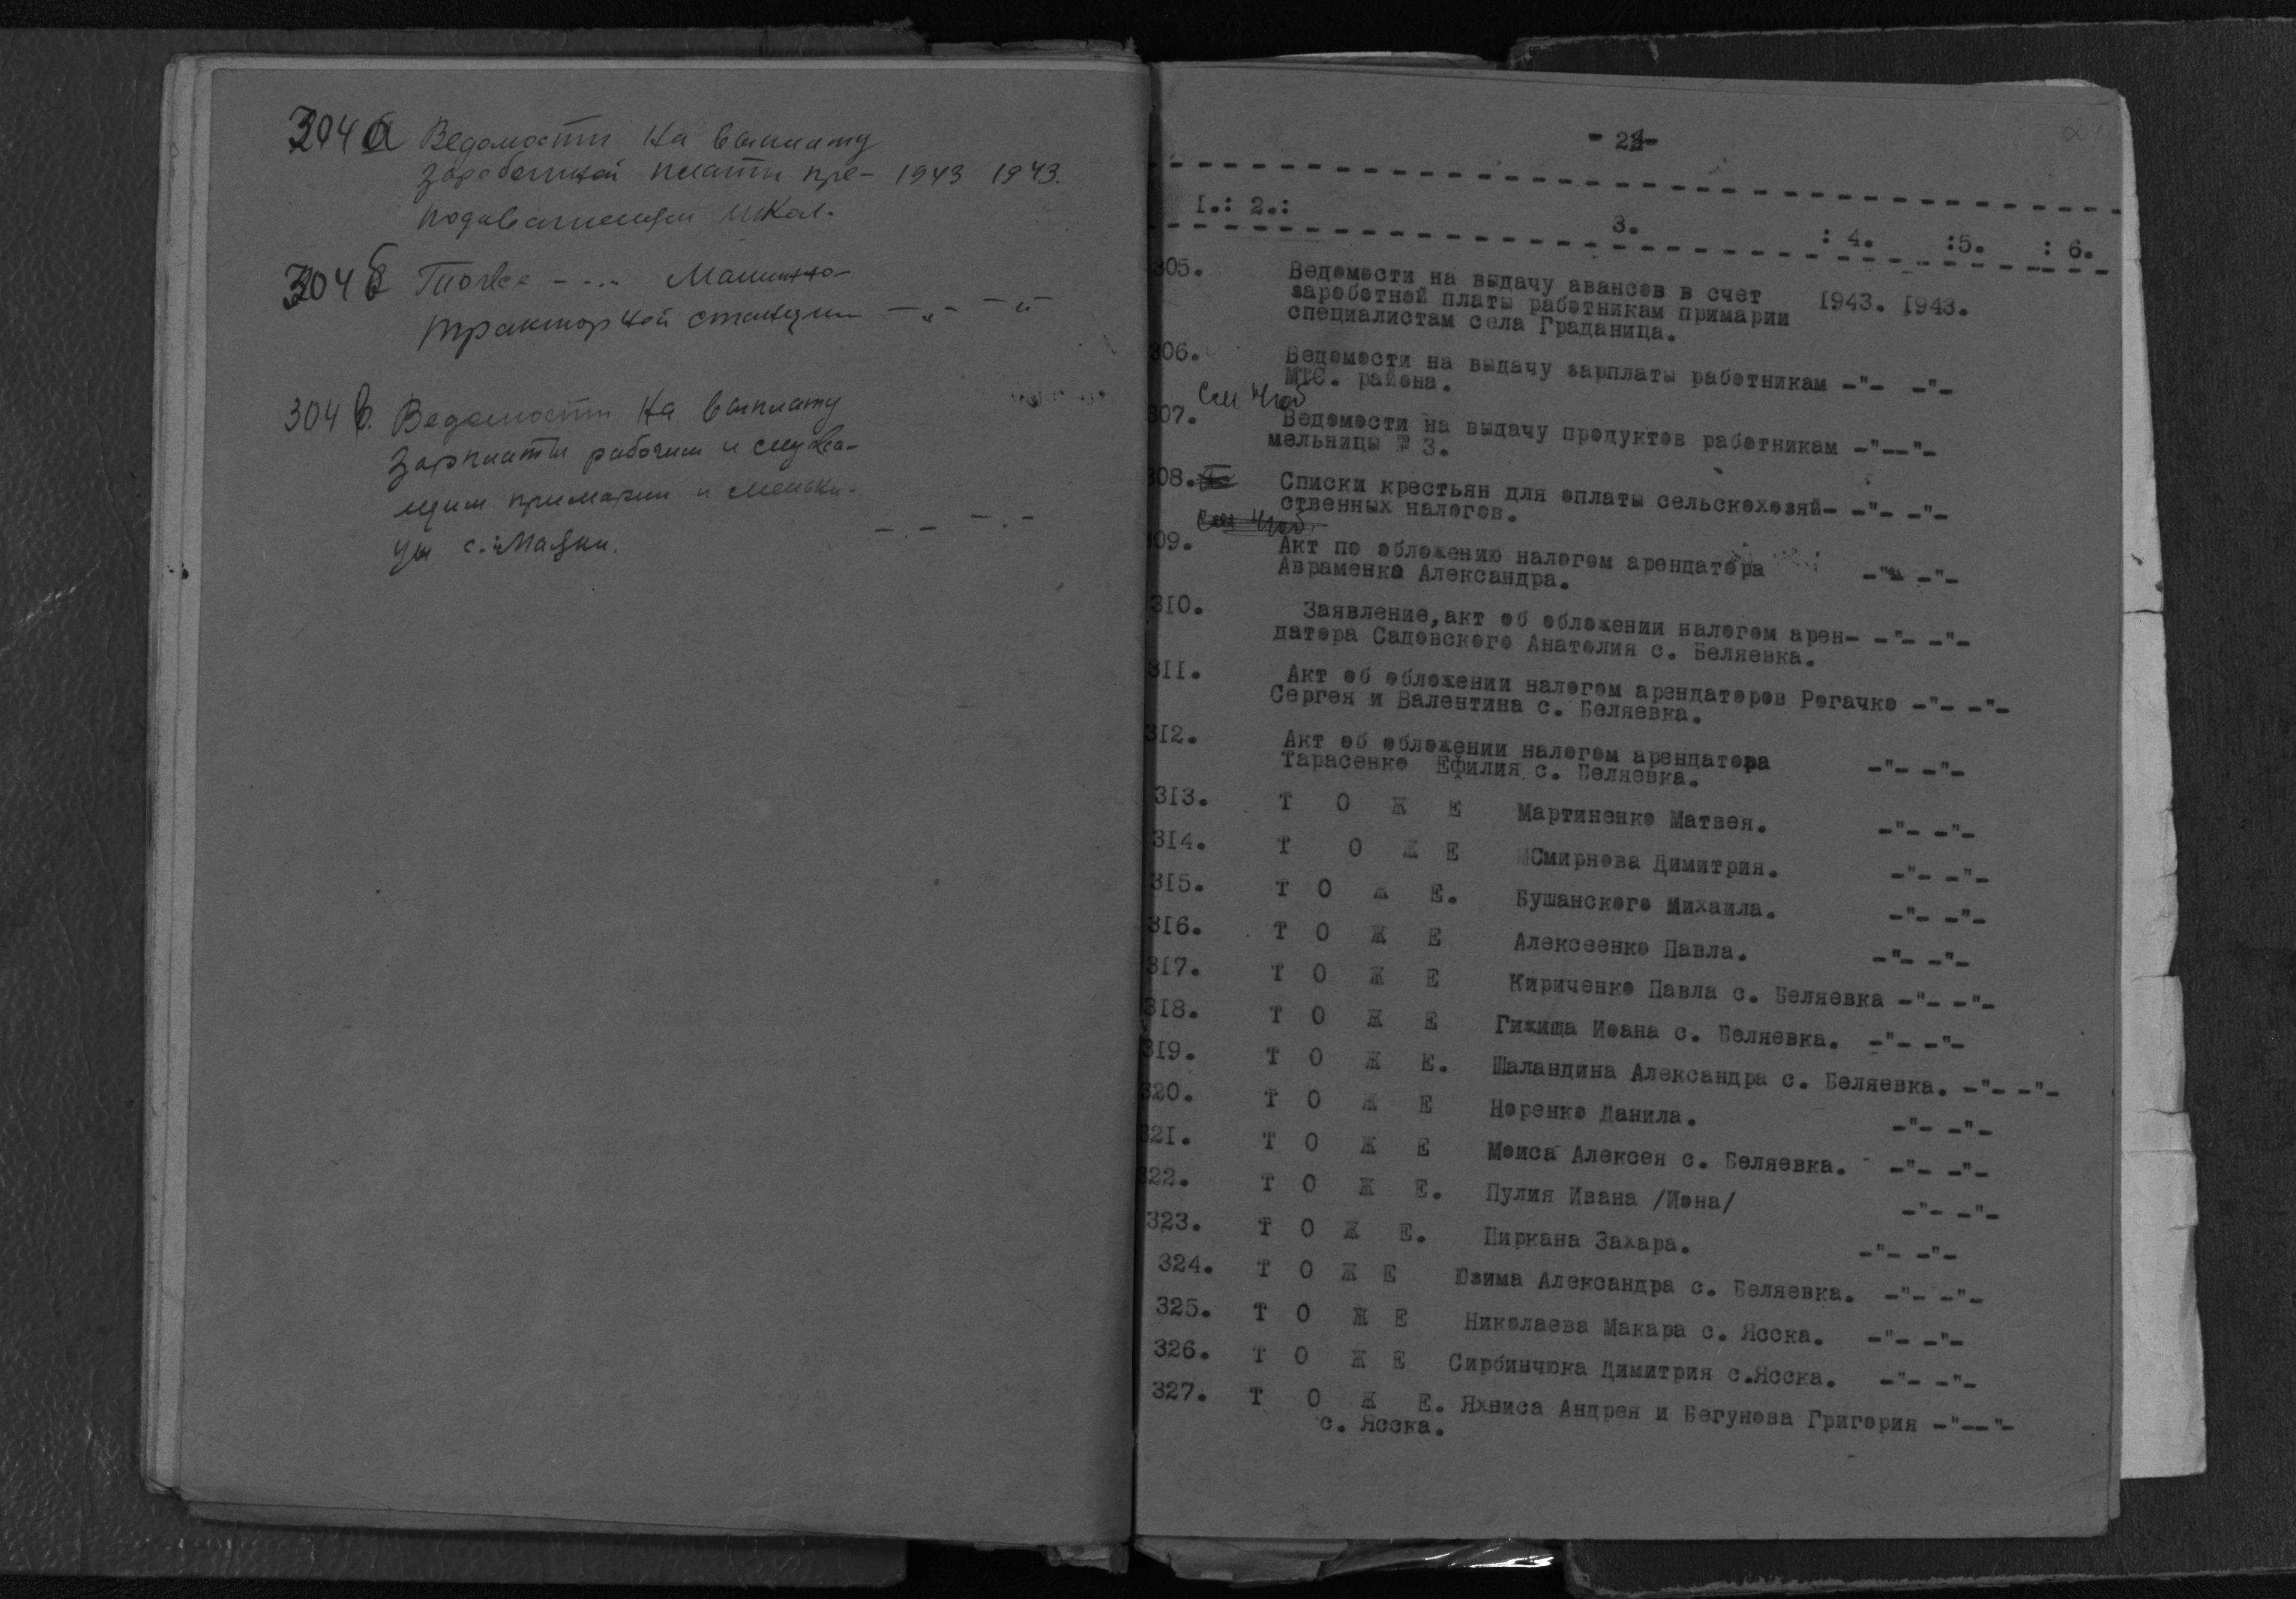 304 а Ведомости на выплату
заработной платы пре- 1943 1943.
подавателям школ.
304 б Тоже - . . . Машинно-
тракторной станции — „ — — „
304 в. Ведомости на выплату
зарплаты рабочим и служа-
щим примарии и мельни-
цы с. Маяки. — . — — . —
- 22-
I.: 2.: 3. : 4. :5. : 6.
305. Ведомости на выдачу авансов в счет
заработной платы работникам примарии I943. I943.
специалистам села Граданица.
306. Ведомости на выдачу зарплаты работникам -"- -"-
МТС. района.
307. Ведомости на выдачу продуктов работникам -"--"-
мельницы № 3.
308. Списки крестьян для оплаты сельскохозяй- -"- -"-
ственных налогов.
309. Акт по обложению налогом арендатора
Авраменко Александра. -"- -"-
3I0. Заявление,акт об обложении налогом арен- -"- -"-
датора Садовского Анатолия с. Беляевка.
3II. Акт об обложении налогом арендаторов Рогачко -"- -"-
Сергея и Валентина с. Беляевка.
3I2. Акт об обложении налогом арендатора
Тарасенко Ефилия с. Беляевка. -"- -"-
3I3. Т О Ж Е Мартиненко Матвея. -"- -"-
3I4. Т О Ж Е Смирнова Димитрия. -"- -"-
3I5. Т О Ж Е. Бушанского Михаила. -"- -"-
3I6. Т О Ж Е Алексеенко Павла. -"- -"-
3I7. Т О Ж Е Кириченко Павла с. Беляевка -"- -"-
3I8. Т О Ж Е Гижища Иоана с. Беляевка. -"- -"-
3I9. Т О Ж Е. Шаландина Александра с. Беляевка. -"- -"-
320. Т О Ж Е Норенко Данила. -"- -"-
32I. Т О Ж Е Моиса Алексея с. Беляевка. -"- -"-
322. Т О Ж Е. Пулия Ивана /Иона/ -"- -"-
323. Т О Ж Е. Пиркана Захара. -"- -"-
324. Т О Ж Е Юзима Александра с. Беляевка. -"- -"-
325. Т О Ж Е Николаева Макара с. Ясска. -"- -"-
326. Т О Ж Е Сирбинчюка Димитрия с.Ясска. -"- -"-
327. Т О Ж Е. Яхниса Андрея и Бегунова Григория -"--"-
с. Ясска.